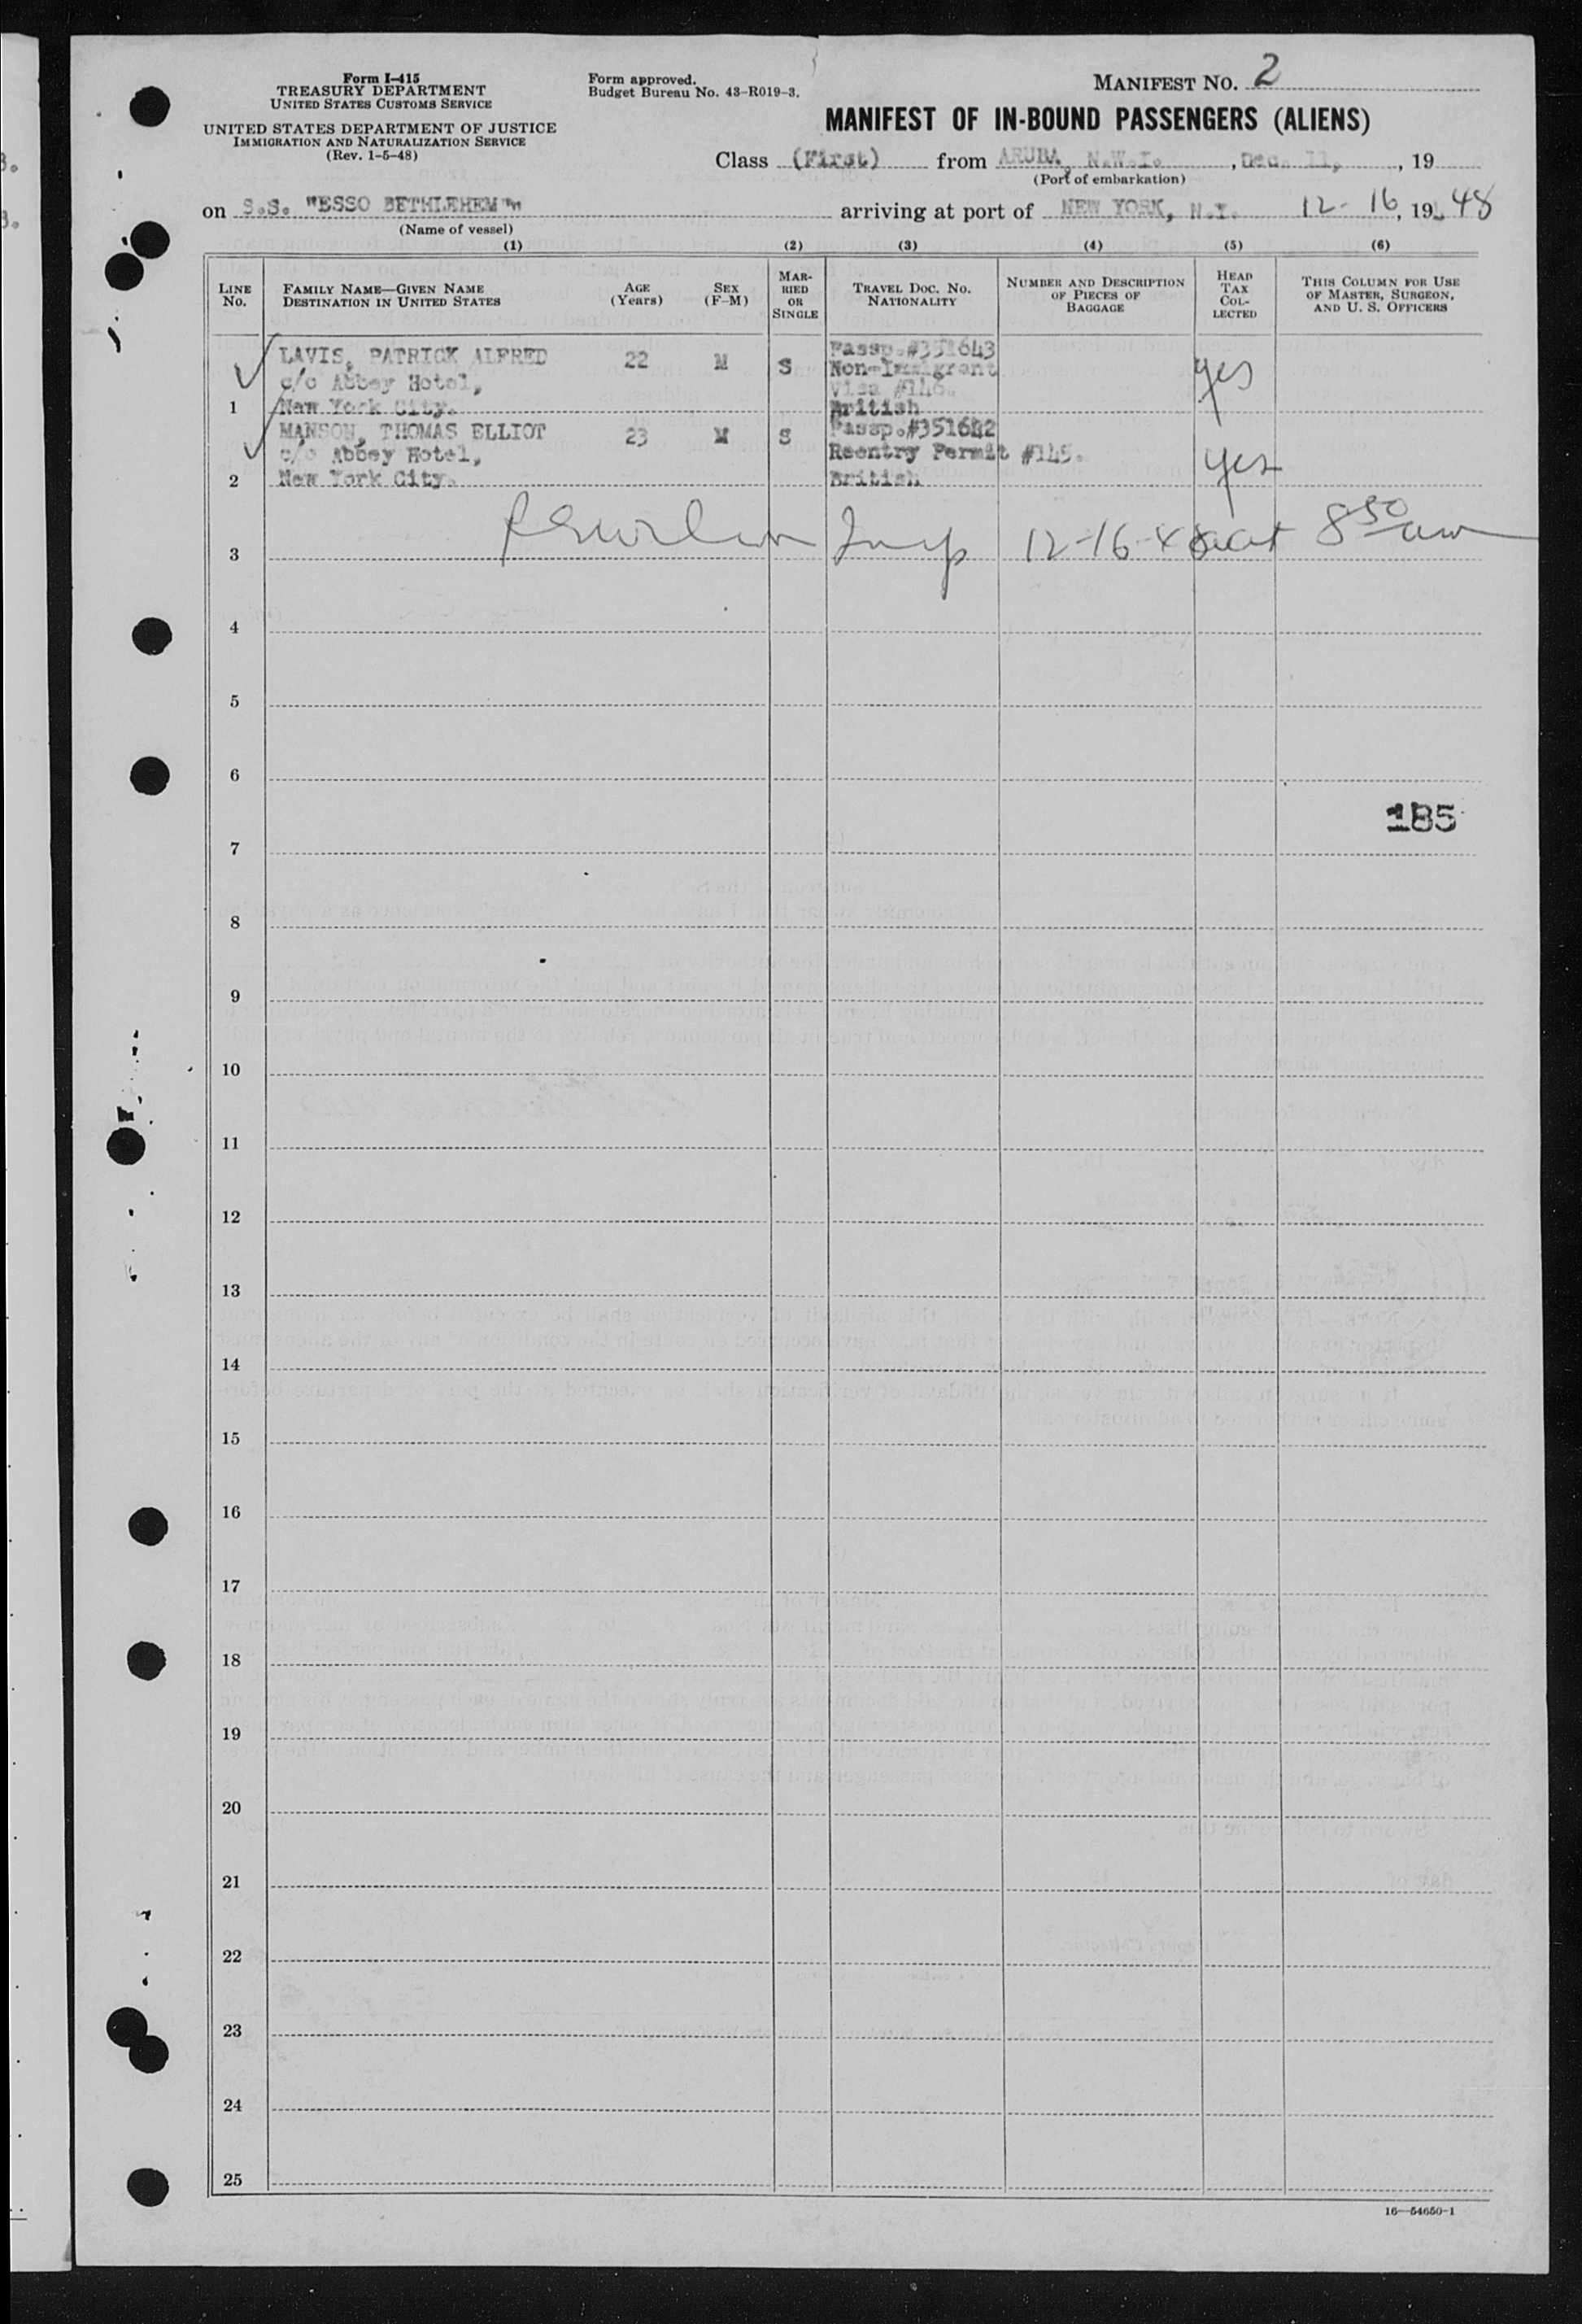 Form I-415
TREASURY DEPARTMENT
UNITED STATES CUSTOMS SERVICE
UNITED STATES DEPARTMENT OF JUSTICE
IMMIGRATION AND NATURALIZATION SERVICE
(Rev. 1-5-48)
Form approved.
Budget Bureau No. 43-R019-3.
MANIFEST NO. 2
MANIFEST OF IN-BOUND PASSENGERS (ALIENS)
Class (First) from ARUBA, N.W.I. , Dec. 11, , 19
(Port of embarkation)
on S.S. "ESSO BETHLEHEM" arriving at port of NEW YORK, N.Y. 12-16, 19 48
(Name of vessel)
(1) (2) (3) (4) (5) (6)
LINE No. FAMILY NAME—GIVEN NAME DESTINATION IN UNITED STATES AGE (Years) SEX (F-M) MARRIED OR SINGLE TRAVEL DOC. NO. NATIONALITY NUMBER AND DESCRIPTION OF PIECES OF BAGGAGE HEAD TAX COLLECTED THIS COLUMN FOR USE OF MASTER, SURGEON, AND U. S. OFFICERS
LAVIS, PATRICK ALFRED 22 M S Passp.#351643
c/o Abbey Hotel, Non-Immigrant yes
Visa #146.
1 New York City. British
MANSON, THOMAS ELLIOT 23 M S Passp.#351642
c/o Abbey Hotel, Reentry Permit #145. yes
2 New York City. British
3 Insp 12-16-48 at 8 50 am
4
5
6
185
7
8
9
10
11
12
13
14
15
16
17
18
19
20
21
22
23
24
25
16—54650-1